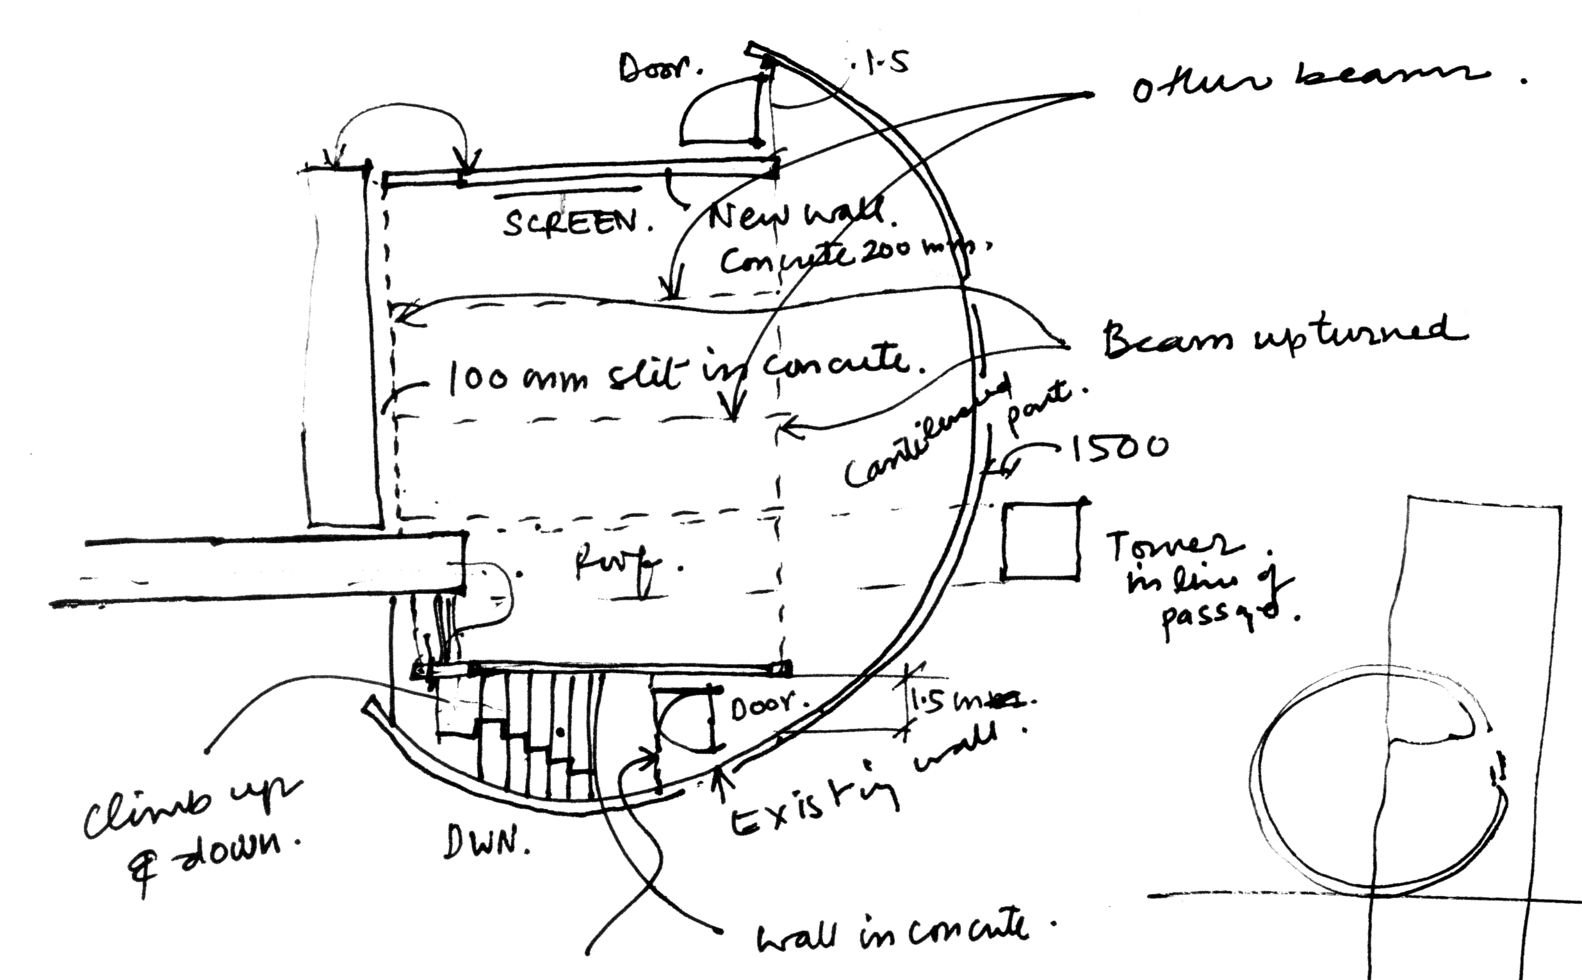 Door.
.1.5
other beams.
SCREEN.
New wall.
Concrete 200 mm.
100 mm slit in concrete.
Beam upturned
Cantilevered
part.
1500
Roof.
Tower.
in line of
passage.
Door.
1.5 m
Existing wall.
Climb up
& down.
DWN.
wall in concrete.